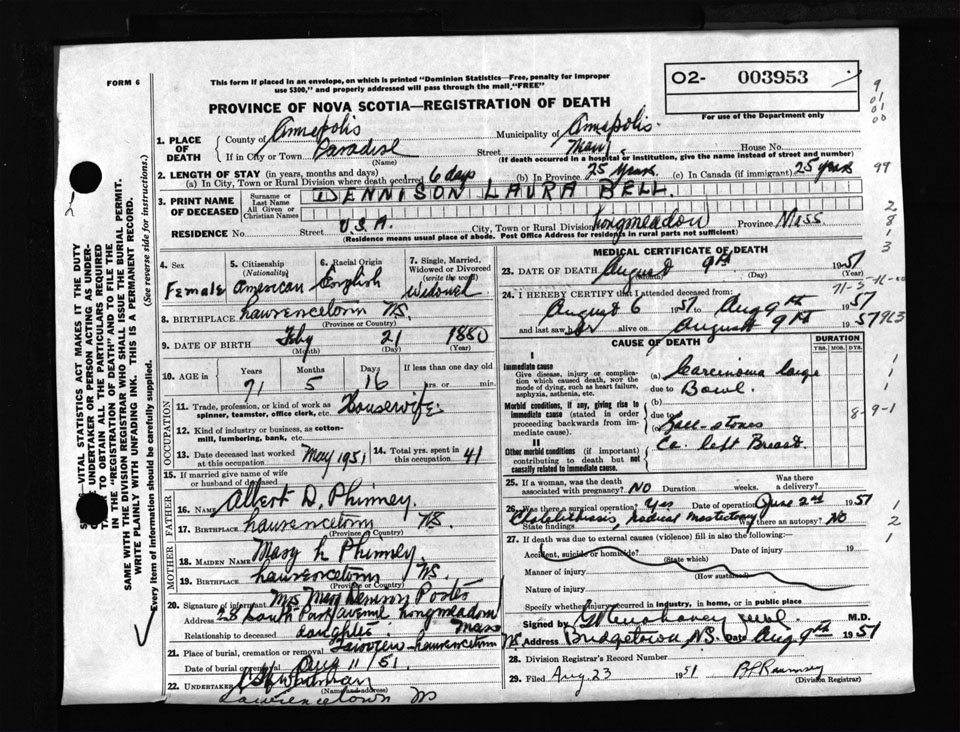 FORM 6
This form if placed in an envelope, on which is printed "Dominion Statistics—Free, penalty for improper
use $300," and properly addressed will pass through the mail "FREE"
O2- 003953
For use of the Department only
PROVINCE OF NOVA SCOTIA—REGISTRATION OF DEATH
1. PLACE OF DEATH
County of Annapolis Municipality of Annapolis
If in City or Town Paradise (Name) Street Main House No.
(If death occurred in a hospital or institution, give the name instead of street and number)
2. LENGTH OF STAY (in years, months and days)
(a) In City, Town or Rural Division where death occurred 6 days (b) In Province 25 years (c) In Canada (if immigrant) 25 years
3. PRINT NAME OF DECEASED
Surname or Last Name
All Given or Christian Names
DENNISON LAURA BELL
RESIDENCE No. Street U.S.A. City, Town or Rural Division Longmeadow Province Mass
(Residence means usual place of abode. Post Office Address for residents in rural parts not sufficient)
4. Sex
Female
5. Citizenship (Nationality)
American
6. Racial Origin
English
7. Single, Married, Widowed or Divorced (write the word)
Widowed
8. BIRTHPLACE Lawrencetown NS.
(Province or Country)
9. DATE OF BIRTH Feby 21 1880
(Month) (Day) (Year)
10. AGE IN Years Months Days If less than one day old
71 5 16 hrs. or min.
OCCUPATION
11. Trade, profession, or kind of work as spinner, teamster, office clerk, etc. Housewife
12. Kind of industry or business, as cotton-mill, lumbering, bank, etc.
13. Date deceased last worked at this occupation May 1951
14. Total yrs. spent in this occupation 41
15. If married give name of wife or husband of deceased
FATHER
16. NAME Albert D. Phinney
17. BIRTHPLACE Lawrencetown NS.
(Province or Country)
MOTHER
18. MAIDEN NAME Mary L Phinney
19. BIRTHPLACE Lawrencetown NS
(Province or Country)
20. Signature of informant Mrs May Denison
Address 28 South Park Avenue Longmeadow Mass
Relationship to deceased daughter
21. Place of burial, cremation or removal Fairview - Lawrencetown
Date of burial or removal Aug 11/51
22. UNDERTAKER
(Name and address)
Lawrencetown NS
MEDICAL CERTIFICATE OF DEATH
23. DATE OF DEATH August 9th 1951
(Month) (Day) (Year)
71-3-11-00
24. I HEREBY CERTIFY that I attended deceased from:
August 6 1951 to Aug 9th 1957
and last saw her alive on August 9th 1957
CAUSE OF DEATH
DURATION
YRS. MOS. DYS.
I
Immediate cause
Give disease, injury or complication which caused death, NOT the mode of dying, such as heart failure, asphyxia, asthenia, etc.
(a) Carcinoma large
due to Bowel.
Morbid conditions, if any, giving rise to immediate cause (stated in order proceeding backwards from immediate cause).
(b)
due to
(c) Gall-stones
8-9-1
II
Other morbid conditions (if important) contributing to death but not causally related to immediate cause.
Ca. left Breast
25. If a woman, was the death associated with pregnancy? NO Duration weeks. Was there a delivery?
26. Was there a surgical operation? Yes Date of operation June 2nd 1951
State findings Cholelithiasis, radical mastectomy Was there an autopsy? NO
27. If death was due to external causes (violence) fill in also the following:—
Accident, suicide or homicide? Date of injury 19
(State which)
Manner of injury
(How sustained)
Nature of injury
Specify whether injury occurred in industry, in home, or in public place
Signed M.D.
Address Bridgetown, NS. Date Aug 9th 1951
28. Division Registrar's Record Number
29. Filed Aug. 23 1951
(Division Registrar)
VITAL STATISTICS ACT MAKES IT THE DUTY
UNDERTAKER OR PERSON ACTING AS UNDER-
TO OBTAIN ALL THE PARTICULARS REQUIRED
IN THE "REGISTRATION OF DEATH" AND TO FILE THE
SAME WITH THE DIVISION REGISTRAR WHO SHALL ISSUE THE BURIAL PERMIT.
WRITE PLAINLY WITH UNFADING INK. THIS IS A PERMANENT RECORD.
Every item of information should be carefully supplied. (See reverse side for instructions.)